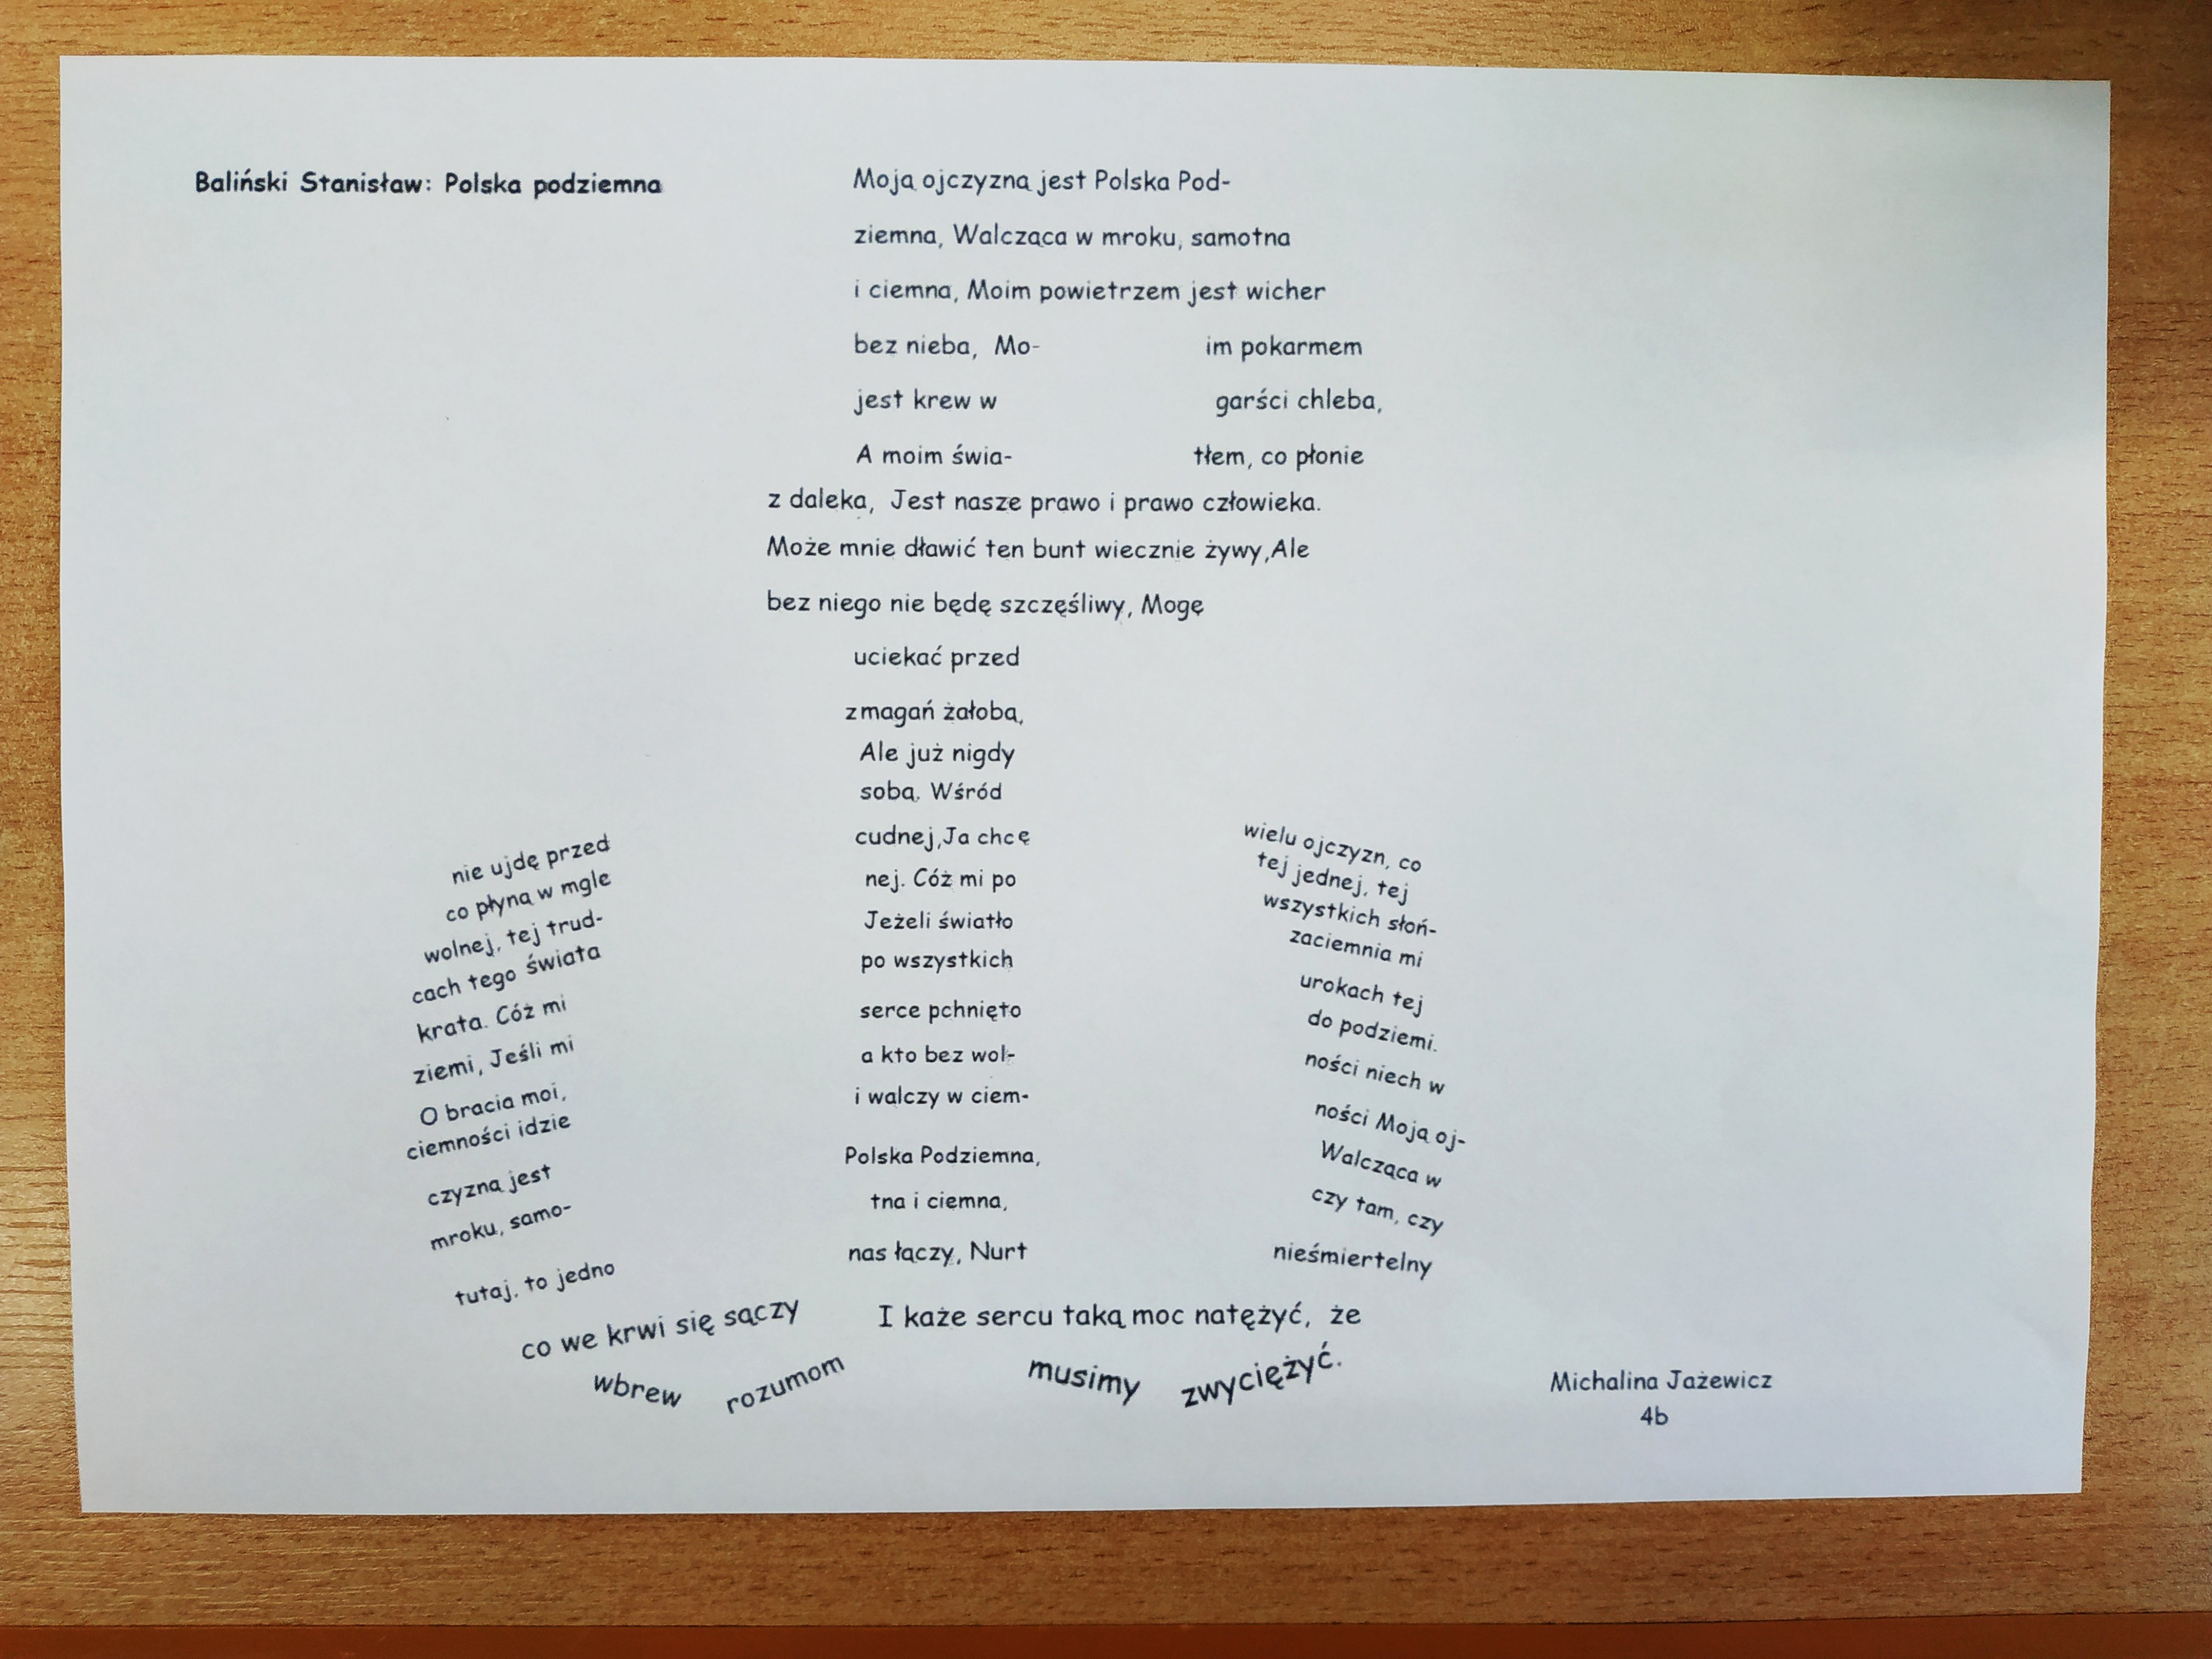 Baliński Stanisław: Polska podziemna
Moją ojczyzną jest Polska Pod-
ziemna, Walcząca w mroku, samotna
i ciemna, Moim powietrzem jest wicher
bez nieba, Mo- im pokarmem
jest krew w garści chleba,
A moim świa- tłem, co płonie
z daleka, Jest nasze prawo i prawo człowieka.
Może mnie dławić ten bunt wiecznie żywy,Ale
bez niego nie będę szczęśliwy, Mogę
uciekać przed
zmagań żałobą,
Ale już nigdy
nie ujdę przed sobą. Wśród wielu ojczyzn, co
co płyną w mgle cudnej,Ja chcę tej jednej, tej
wolnej, tej trud- nej. Cóż mi po wszystkich słoń-
cach tego świata Jeżeli światło zaciemnia mi
krata. Cóż mi po wszystkich urokach tej
ziemi, Jeśli mi serce pchnięto do podziemi.
O bracia moi, a kto bez wol- ności niech w
ciemności idzie i walczy w ciem- ności Moją oj-
czyzną jest Polska Podziemna, Walcząca w
mroku, samo- tna i ciemna, czy tam, czy
tutaj, to jedno nas łączy, Nurt nieśmiertelny
co we krwi się sączy I każe sercu taką moc natężyć, że
wbrew rozumom musimy zwyciężyć.
Michalina Jażewicz
4b